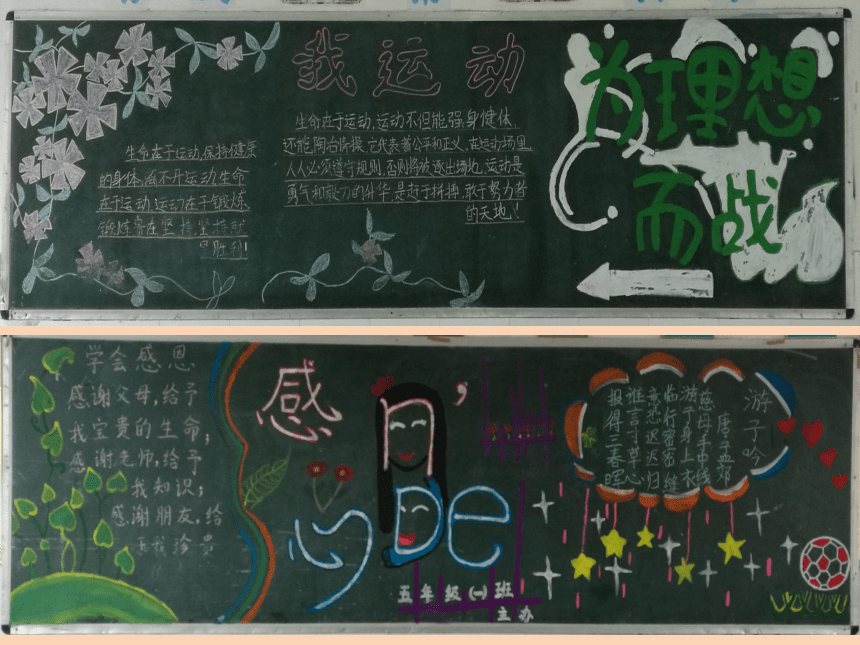 我运动
生命在于运动,保持健康
的身体,离不开运动,生命
在于运动,运动在于锻炼,
锻炼贵在坚持,坚持就
是胜利!
生命在于运动,运动不但能强身健体,
还能陶冶情操,它代表着公平和正义,在运动场里,
人人必须遵守规则,否则将被逐出场地。运动是
勇气和毅力的升华,是于拼搏,敢于努力者
的天地!
为理想
而战
学会感恩
感谢父母,给予
我宝贵的生命;
感谢老师,给予
我知识;
感谢朋友,给
予我珍贵
感月,
心De
五年级(一)班
主办
游子吟
唐·孟郊
慈母手中线
游子身上衣
临行密密缝
意恐迟迟归
谁言寸草心
报得三春晖